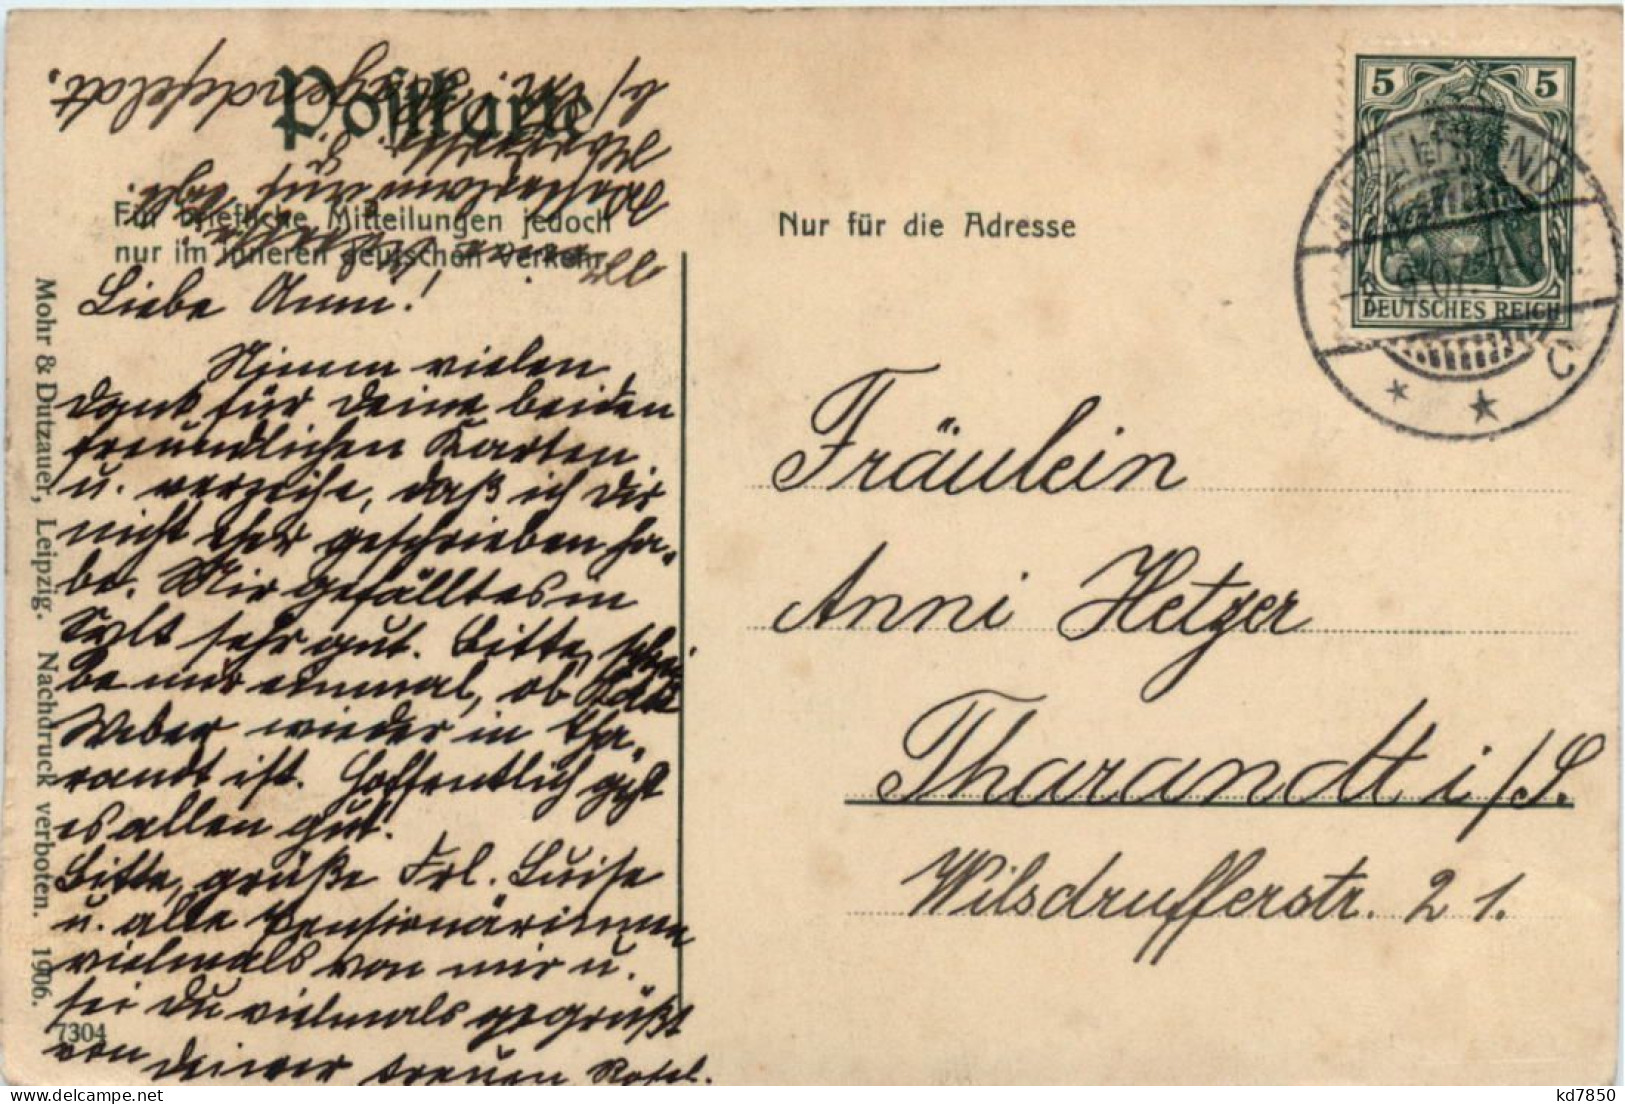 Postkarte
Für briefliche Mitteilungen jedoch
nur im inneren deutschen Verkehr.
Nur für die Adresse
5 5
DEUTSCHES REICH
Liebe Anni!
Nimm vielen
Dank für Deine beiden
freundlichen Karten
u. verzeihe, daß ich Dir
nicht eher geschrieben ha-
be. Mir gefällt es in
Sylt sehr gut. Bitte, schrei
be mir einmal, ob
Weber wieder in Tha-
randt ist. Hoffentlich geht
es allen gut.
Bitte, grüße Frl. Luise
u. alle Pensionärinnen
vielmals von mir u.
sei Du vielmals gegrüßt
von Deiner treuen Rosel.
Fräulein
Anni Hetzer
Tharandt i/S.
Wilsdrufferstr. 21.
Mohr & Dutzauer, Leipzig. Nachdruck verboten. 1906.
7304
Westerland auf Sylt.
b/ M. Hagendefeldt.
kd7850